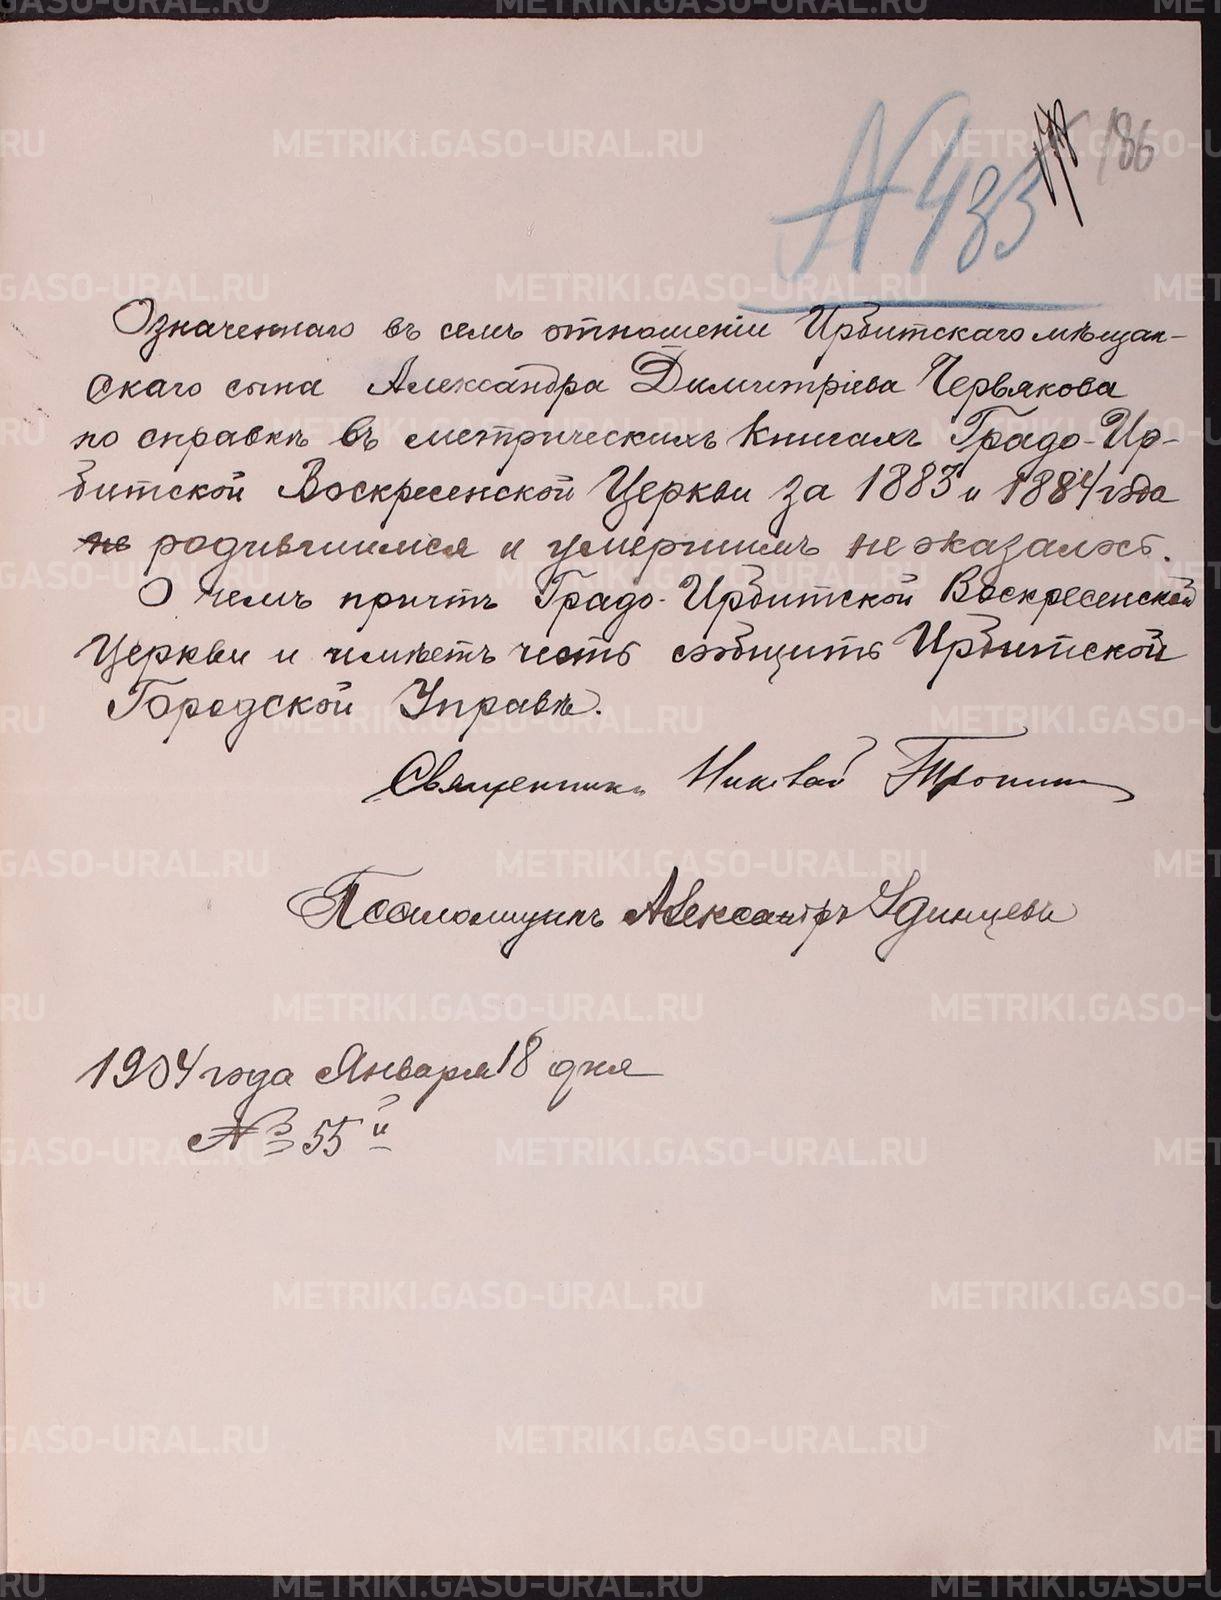 № 433
186
Означеннаго въ семъ отношеніи Ирбитскаго мѣщан-
скаго сына Александра Димитріева Червякова
по справкѣ въ метрическихъ книгахъ Градо-Ир-
битской Воскресенской Церкви за 1883 и 1884 года
не родившимся и умершимъ не оказалось.
О чемъ причтъ Градо-Ирбитской Воскресенской
Церкви и имѣетъ честь сообщить Ирбитской
Городской Управѣ.
Священникъ Николай Тропинъ
Псаломщикъ Александръ Удинцевъ
1904 года Января 18 дня
№ 55й
METRIKI.GASO-URAL.RU